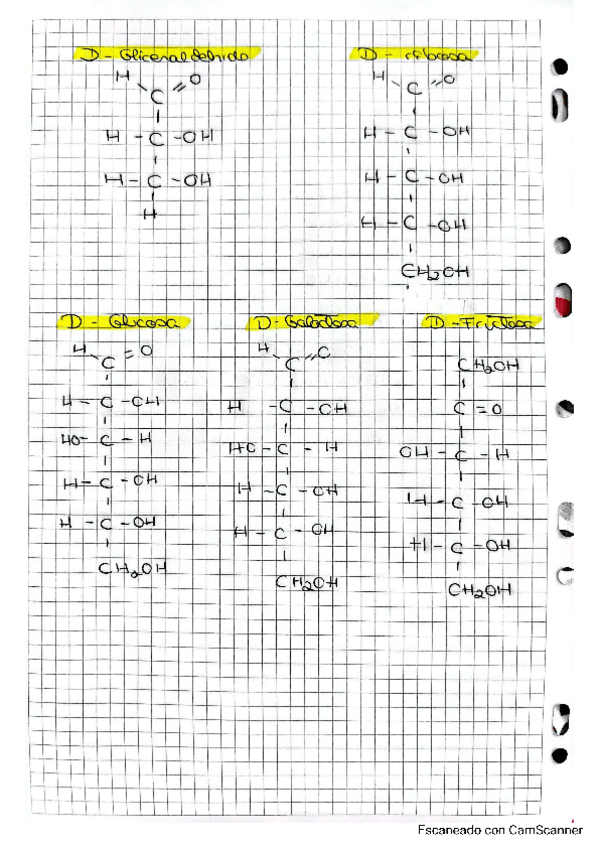 D - Gliceraldehido
H O
C
H - C - OH
H - C - OH
H
D - ribosa
H O
C
H - C - OH
H - C - OH
H - C - OH
CH2OH
D - Glucosa
H = O
C
H - C - OH
HO - C - H
H - C - OH
H - C - OH
CH2OH
D - Galactosa
H O
C
H - C - OH
HO - C - H
H - C - OH
H - C - OH
CH2OH
D - Fructosa
CH2OH
C = O
OH - C - H
H - C - OH
H - C - OH
CH2OH
Escaneado con CamScanner